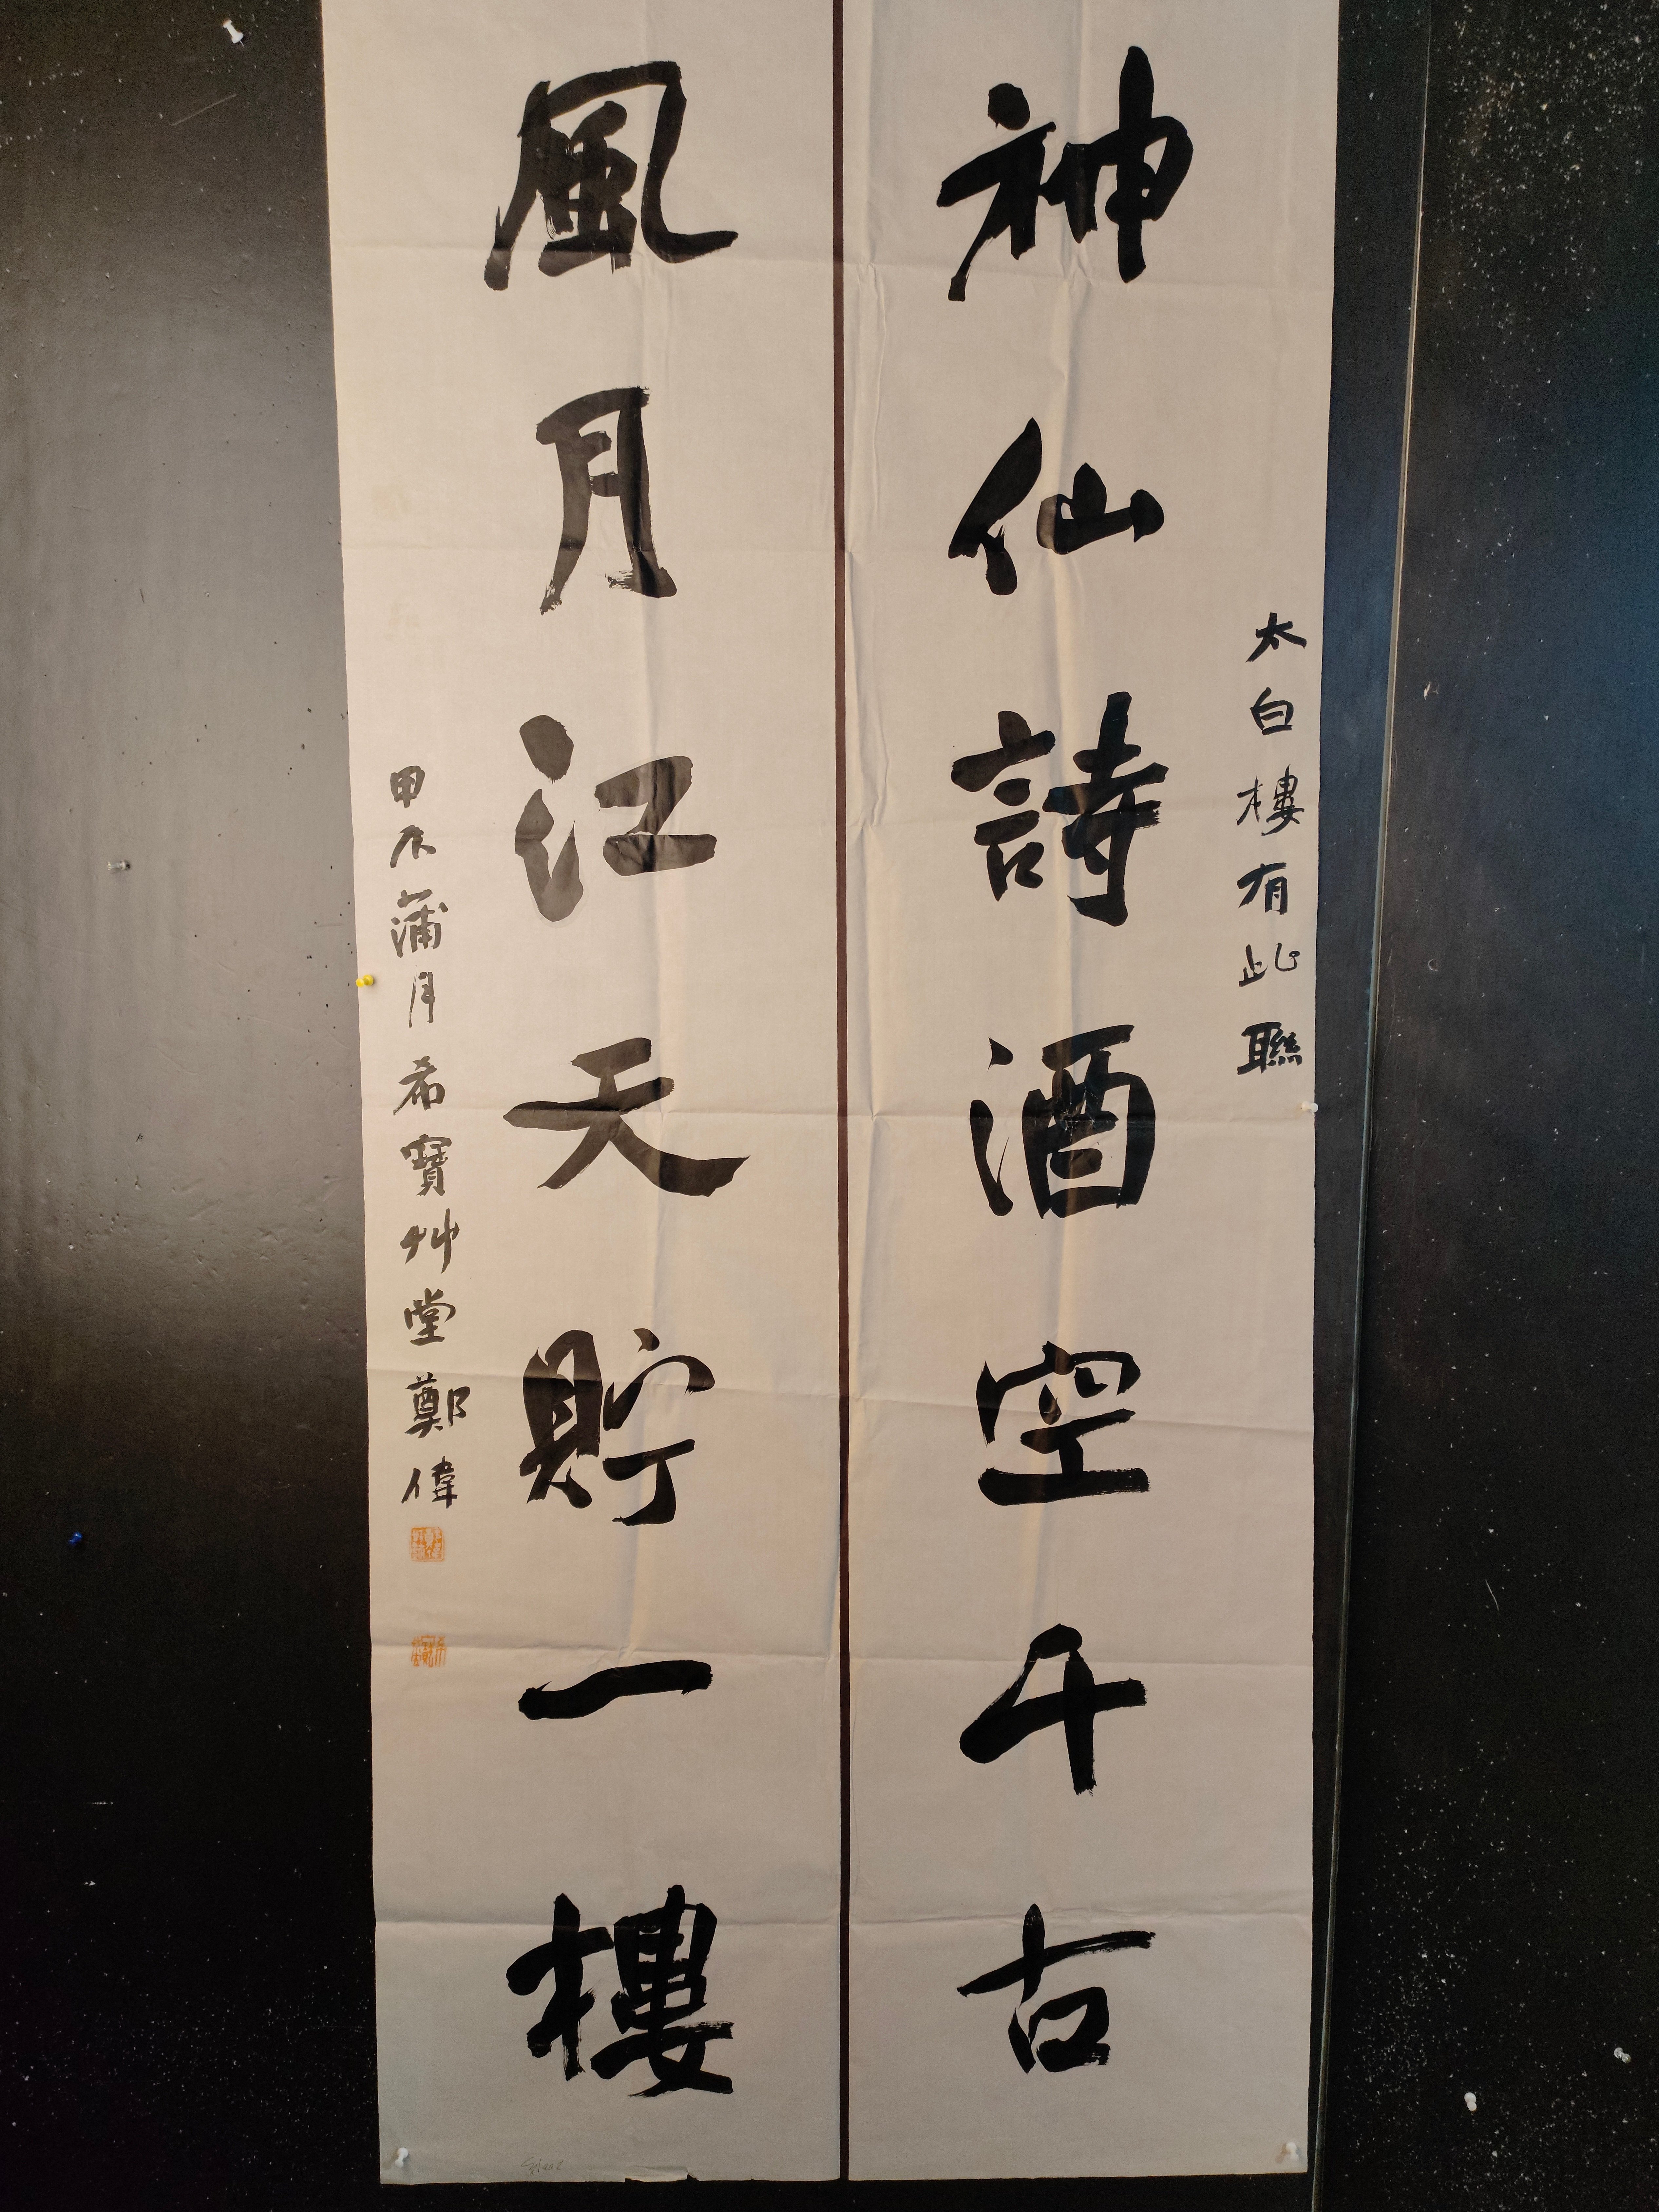 太白樓有此聯
神仙詩酒空千古
風月江天貯一樓
甲辰蒲月希寶艸堂鄭偉